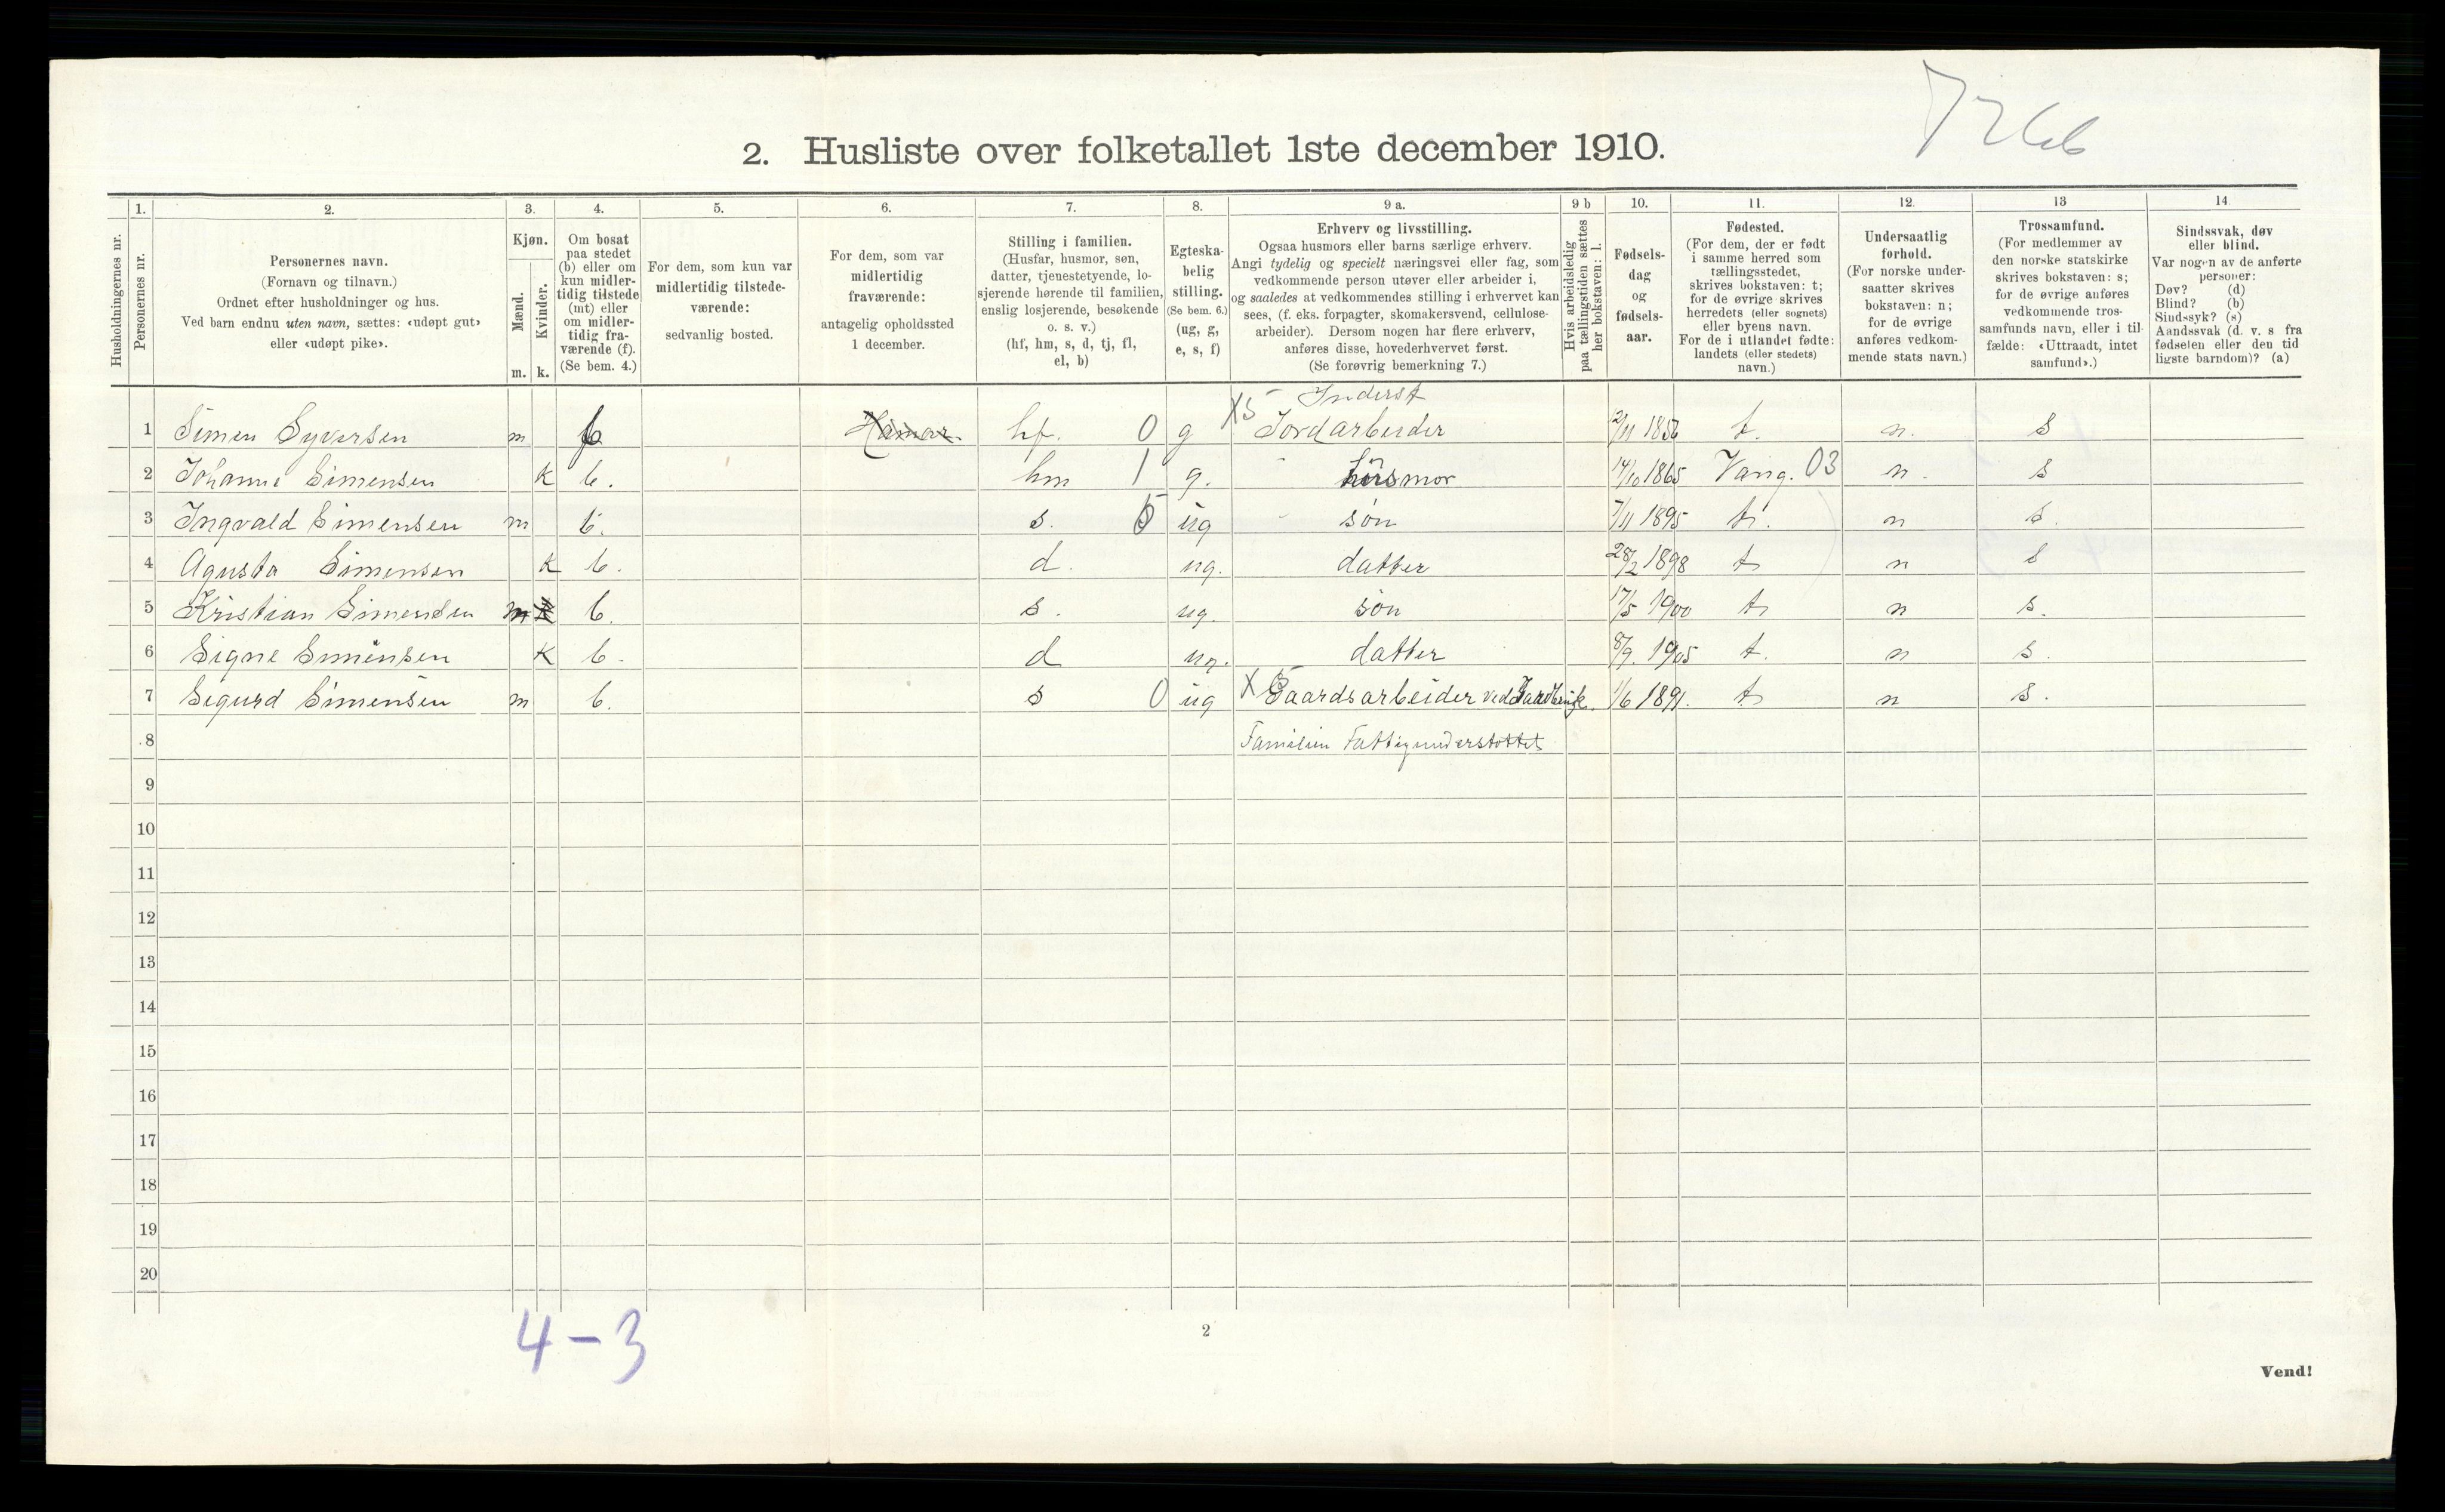 7266
2. Husliste over folketallet 1ste december 1910.
Husholdningernes nr.
1. Personernes nr.
2. Personernes navn.
(Fornavn og tilnavn.)
Ordnet efter husholdninger og hus.
Ved barn endnu uten navn, sættes: «udøpt gut»
eller «udøpt pike».
3. Kjøn.
Mænd. m.
Kvinder. k.
4. Om bosat
paa stedet
(b) eller om
kun midler-
tidig tilstede
(mt) eller
om midler-
tidig fra-
værende (f).
(Se bem. 4.)
5. For dem, som kun var
midlertidig tilstede-
værende:
sedvanlig bosted.
6. For dem, som var
midlertidig
fraværende:
antagelig opholdssted
1 december.
7. Stilling i familien.
(Husfar, husmor, søn,
datter, tjenestetyende, lo-
sjerende hørende til familien,
enslig losjerende, besøkende
o. s. v.)
(hf, hm, s, d, tj, fl,
el, b)
8. Egteska-
belig
stilling.
(Se bem. 6.)
(ug, g,
e, s, f)
9 a. Erhverv og livsstilling.
Ogsaa husmors eller barns særlige erhverv.
Angi tydelig og specielt næringsvei eller fag, som
vedkommende person utøver eller arbeider i,
og saaledes at vedkommendes stilling i erhvervet kan
sees, (f. eks. forpagter, skomakersvend, cellulose-
arbeider). Dersom nogen har flere erhverv,
anføres disse, hovederhvervet først.
(Se forøvrig bemerkning 7.)
9 b Hvis arbeidsledig
paa tællingstiden sættes
her bokstaven: l.
10. Fødsels-
dag
og
fødsels-
aar.
11. Fødested.
(For dem, der er født
i samme herred som
tællingsstedet,
skrives bokstaven: t;
for de øvrige skrives
herredets (eller sognets)
eller byens navn.
For de i utlandet fødte:
landets (eller stedets)
navn.)
12. Undersaatlig
forhold.
(For norske under-
saatter skrives
bokstaven: n;
for de øvrige
anføres vedkom-
mende stats navn.)
13 Trossamfund.
(For medlemmer av
den norske statskirke
skrives bokstaven: s;
for de øvrige anføres
vedkommende tros-
samfunds navn, eller i til-
fælde: «Uttraadt, intet
samfund».)
14 Sindssvak, døv
eller blind.
Var nogen av de anførte
personer:
Døv? (d)
Blind? (b)
Sindssyk? (s)
Aandssvak (d. v. s fra
fødselen eller den tid
ligste barndom)? (a)
X5 Inderst
1 Simen Syversen m b Hamar. hf. 0 g Jordarbeider 12/11 1856 t. n. s
2 Johanne Simensen k b. hm 1 g. husmor 14/10 1865 Vang. 03 n. s
3 Ingvald Simensen m b. s. 5 ug søn 7/11 1895 t. n s.
4 Agusta Simensen k b. d. ug. datter 28/2 1898 t n s
5 Kristian Simensen m k b. s. ug. søn 17/5 1900 t n s.
6 Signe Simensen k b. d ug. datter 8/9. 1905 t. n s.
7 Sigurd Simensen m b. s 0 ug X Gaardsarbeider ved Jordbruk. 1/6 1891. t n s.
8 Familien Fattigunderstøttet
9
10
11
12
13
14
15
16
17
18
19
20
4-3
2
Vend!